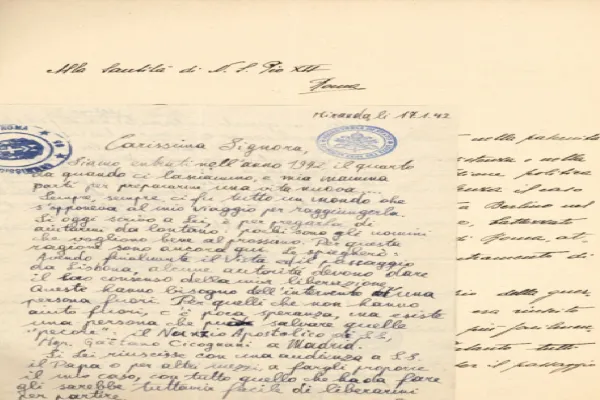 Alla Santità di N. S. Pio XII
Roma
Miranda li 17.1.42
ROMA
Carissima Signora,
Siamo entrati nell'anno 1942 il quarto
da quando ci lasciammo, e mia mamma
partì per prepararmi una vita nuova...
Sempre, sempre, ci fu tutto un mondo che
s'opponeva al mio viaggio per raggiungerla.
Se oggi scrivo a Lei, è per pregarla di
aiutarmi da lontano: pochi sono gli uomini
che vogliono bene al prossimo. Per questa
ragione sono ancora qui. Le spiegherò:
Avendo finalmente il Visto ed il passaggio
da Lisbona, alcune autorità devono dare
il loro consenso della mia liberazione.
Queste hanno bisogno dell'intervento d'una
persona fuori. Per quelli che non hanno
aiuto fuori, c'è poca speranza, ma esiste
una persona che può salvare quelle
al Nunzio Apostolico di S.S.
Mgr. Gaetano Cicognani a Madrid.
Se Lei riuscisse con una audienza a S.S.
il Papa o per altri mezzi, a fargli proporre
il mio caso, con tutto quello che ha da fare
gli sarebbe tuttavia facile di liberarmi
per partire.
nella paternità
e nella
politica
il caso
a Berlino nel
di Roma, at-
di
della guer-
più
tutto
per il passaggio